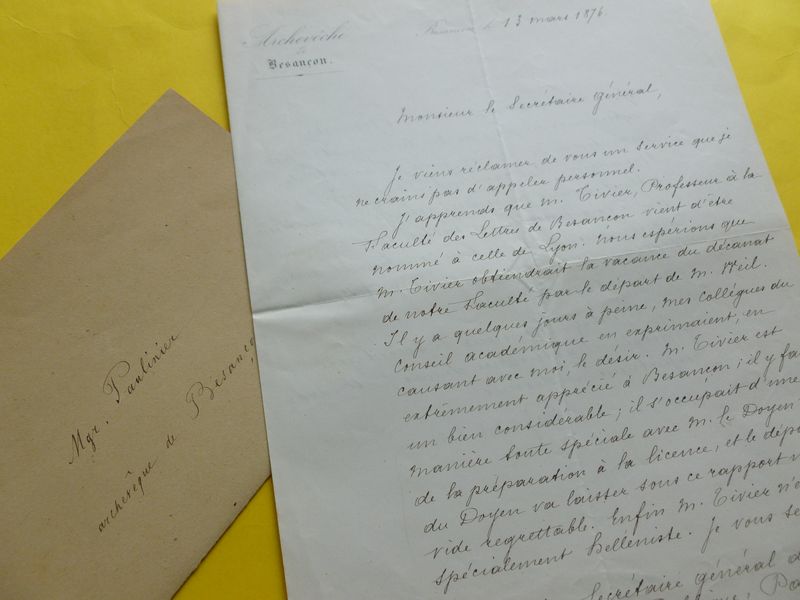 Archevêché
de
Besançon.
Besançon le 13 mars 1876.
Monsieur le Secrétaire général,
Je viens réclamer de vous un service que je
ne crains pas d'appeler personnel.
J'apprends que M. Tivier, Professeur à la
Faculté des Lettres de Besançon vient d'être
nommé à celle de Lyon. Nous espérions que
M. Tivier obtiendrait la vacance du décanat
de notre Faculté par le départ de M. Weil.
Il y a quelques jours à peine, mes collègues du
Conseil académique en exprimaient, en
causant avec moi, le désir. M. Tivier est
extrêmement apprécié à Besançon ; il y fai
un bien considérable ; il s'occupait d'une
manière toute spéciale avec M. le Doyen
de la préparation à la licence, et le dépa
du Doyen va laisser sous ce rapport u
vide regrettable. Enfin M. Tivier n'e
spécialement helléniste. Je vous se
Secrétaire général d
Mgr. Paulinier
archevêque de Besanço